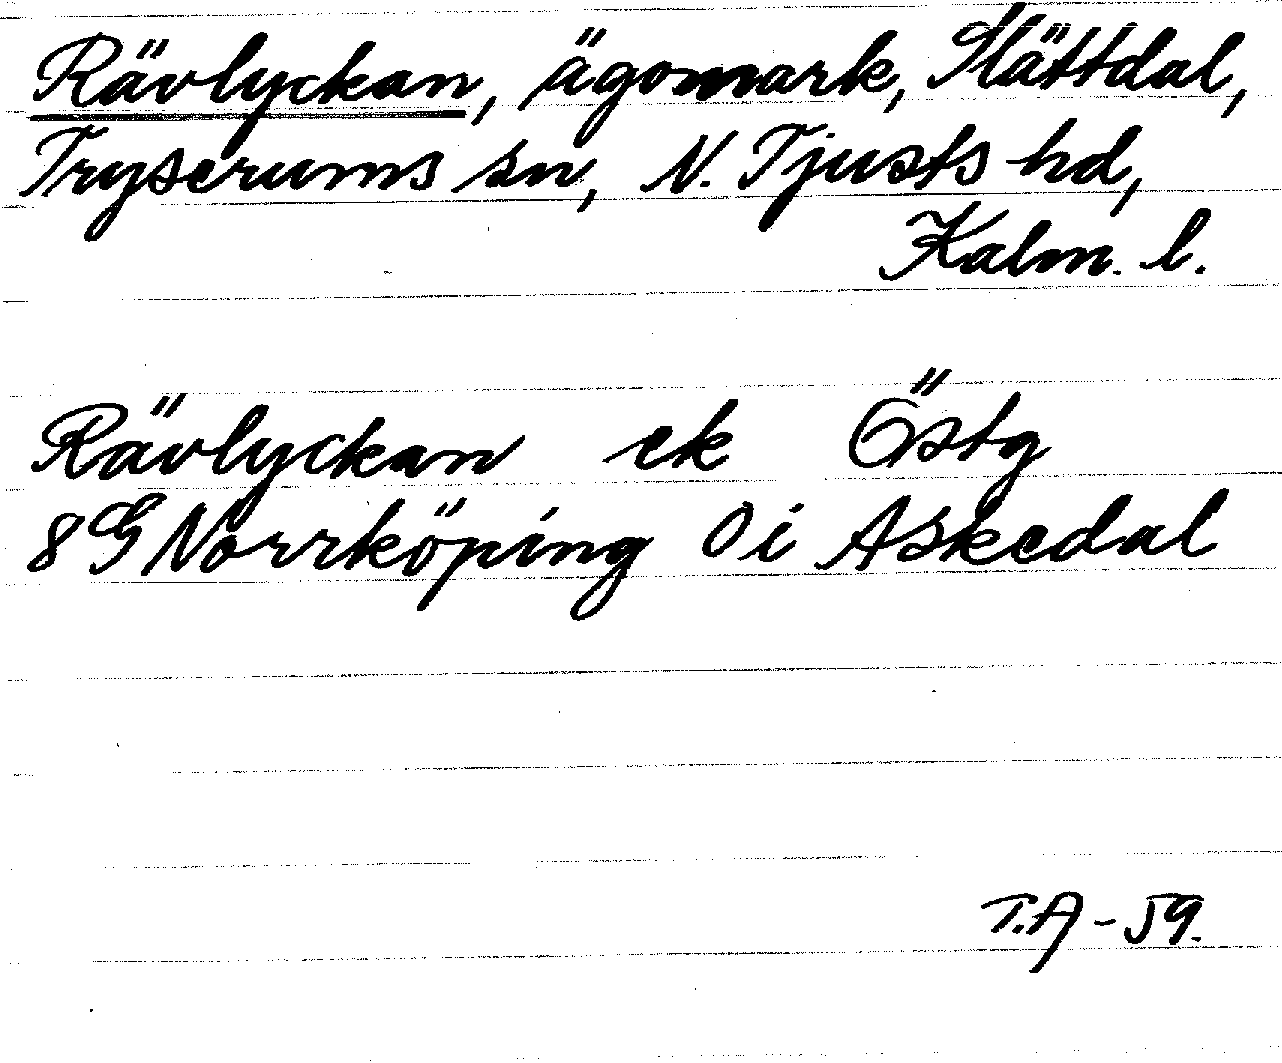 Rävlyckan, ägomark, Slättdal,
Tryserums sn, N. Tjusts hd,
Kalm. l.
Rävlyckan ek Östg
8G Norrköping Öi Askedal
T.A - 59.